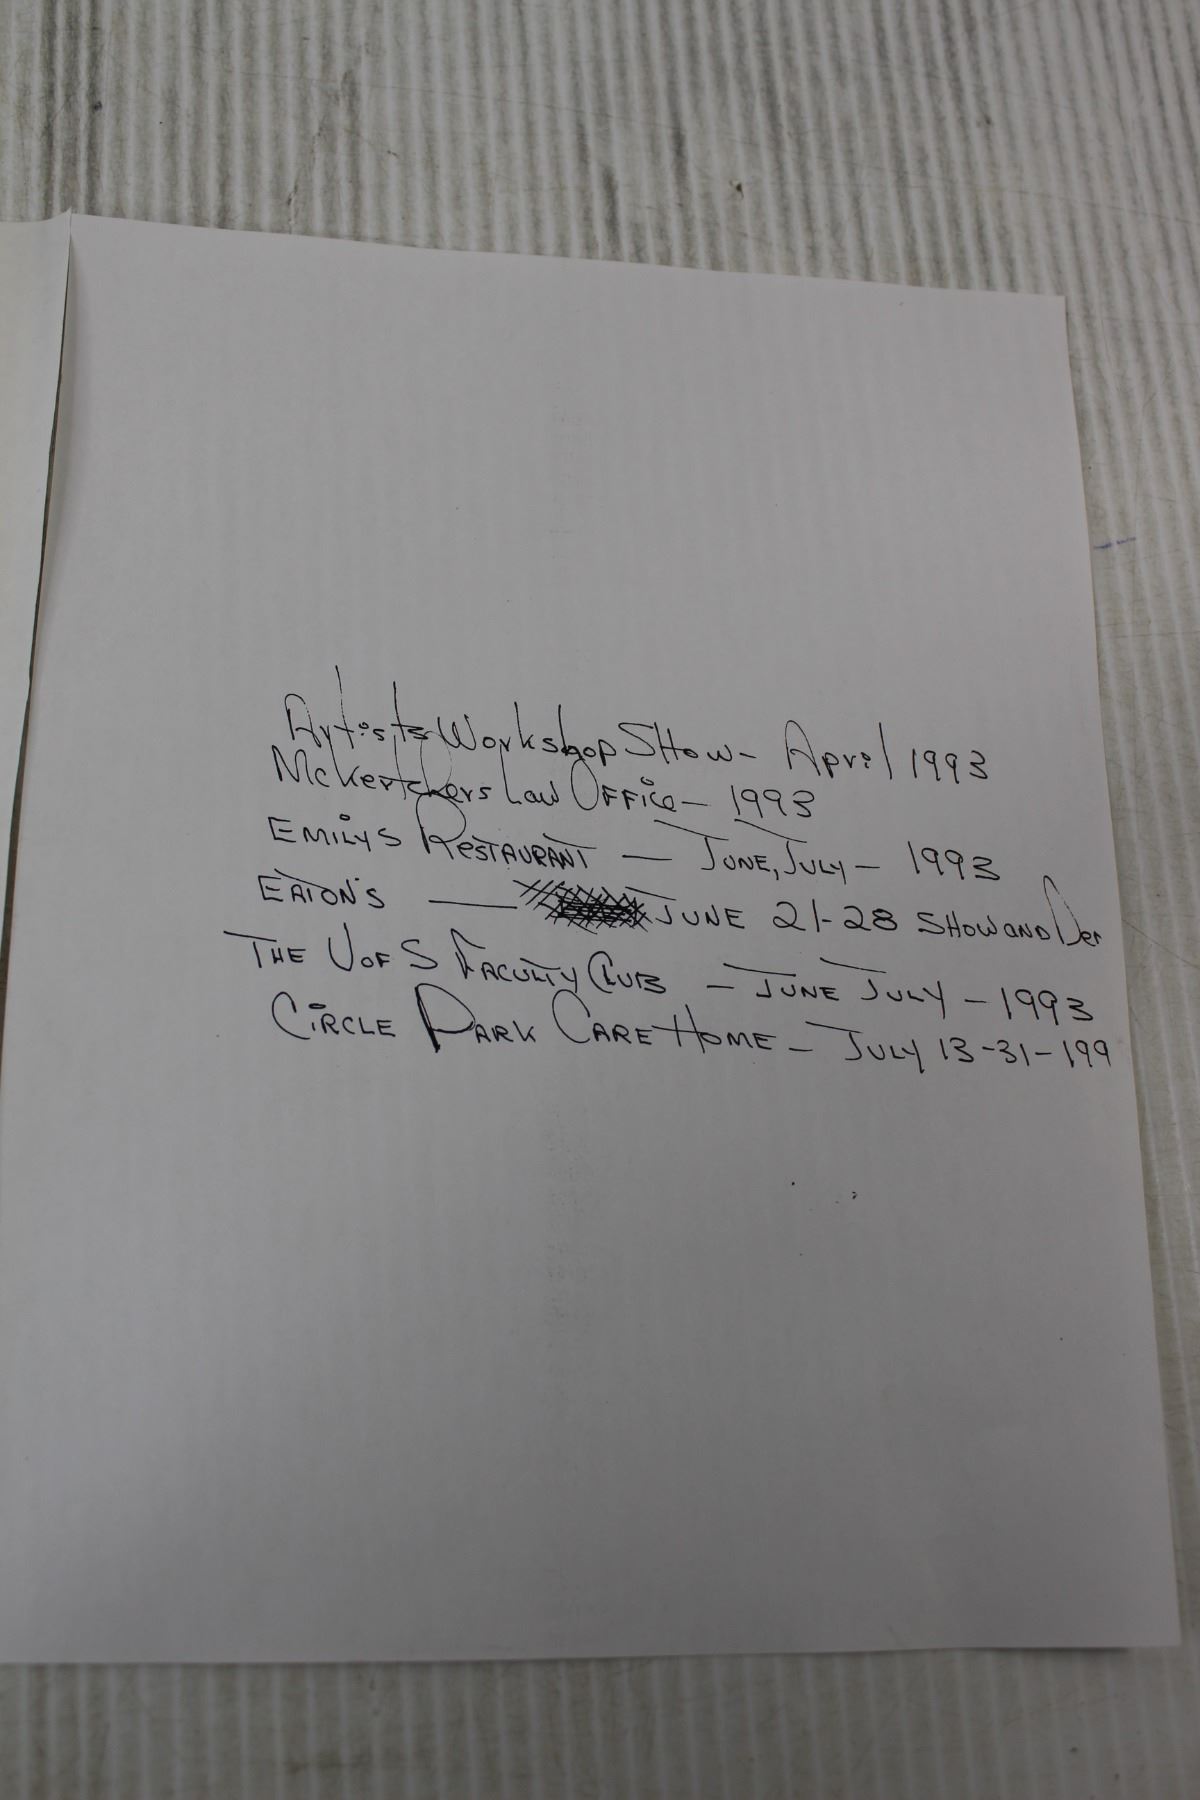 Artists Workshop Show - April 1993
McKerchers Law Office - 1993
EMILYS RESTAURANT — JUNE, JULY - 1993
EATON'S — JUNE 21-28 SHOW AND Dem
THE U OF S FACULTY CLUB - JUNE JULY - 1993
CIRCLE PARK CARE HOME - JULY 13-31-199